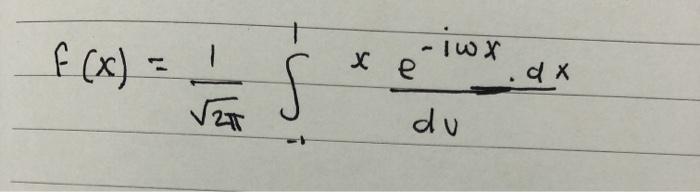 f(x) = 1/√2π ∫₋₁¹ x e^(-iωx) . dx / dv